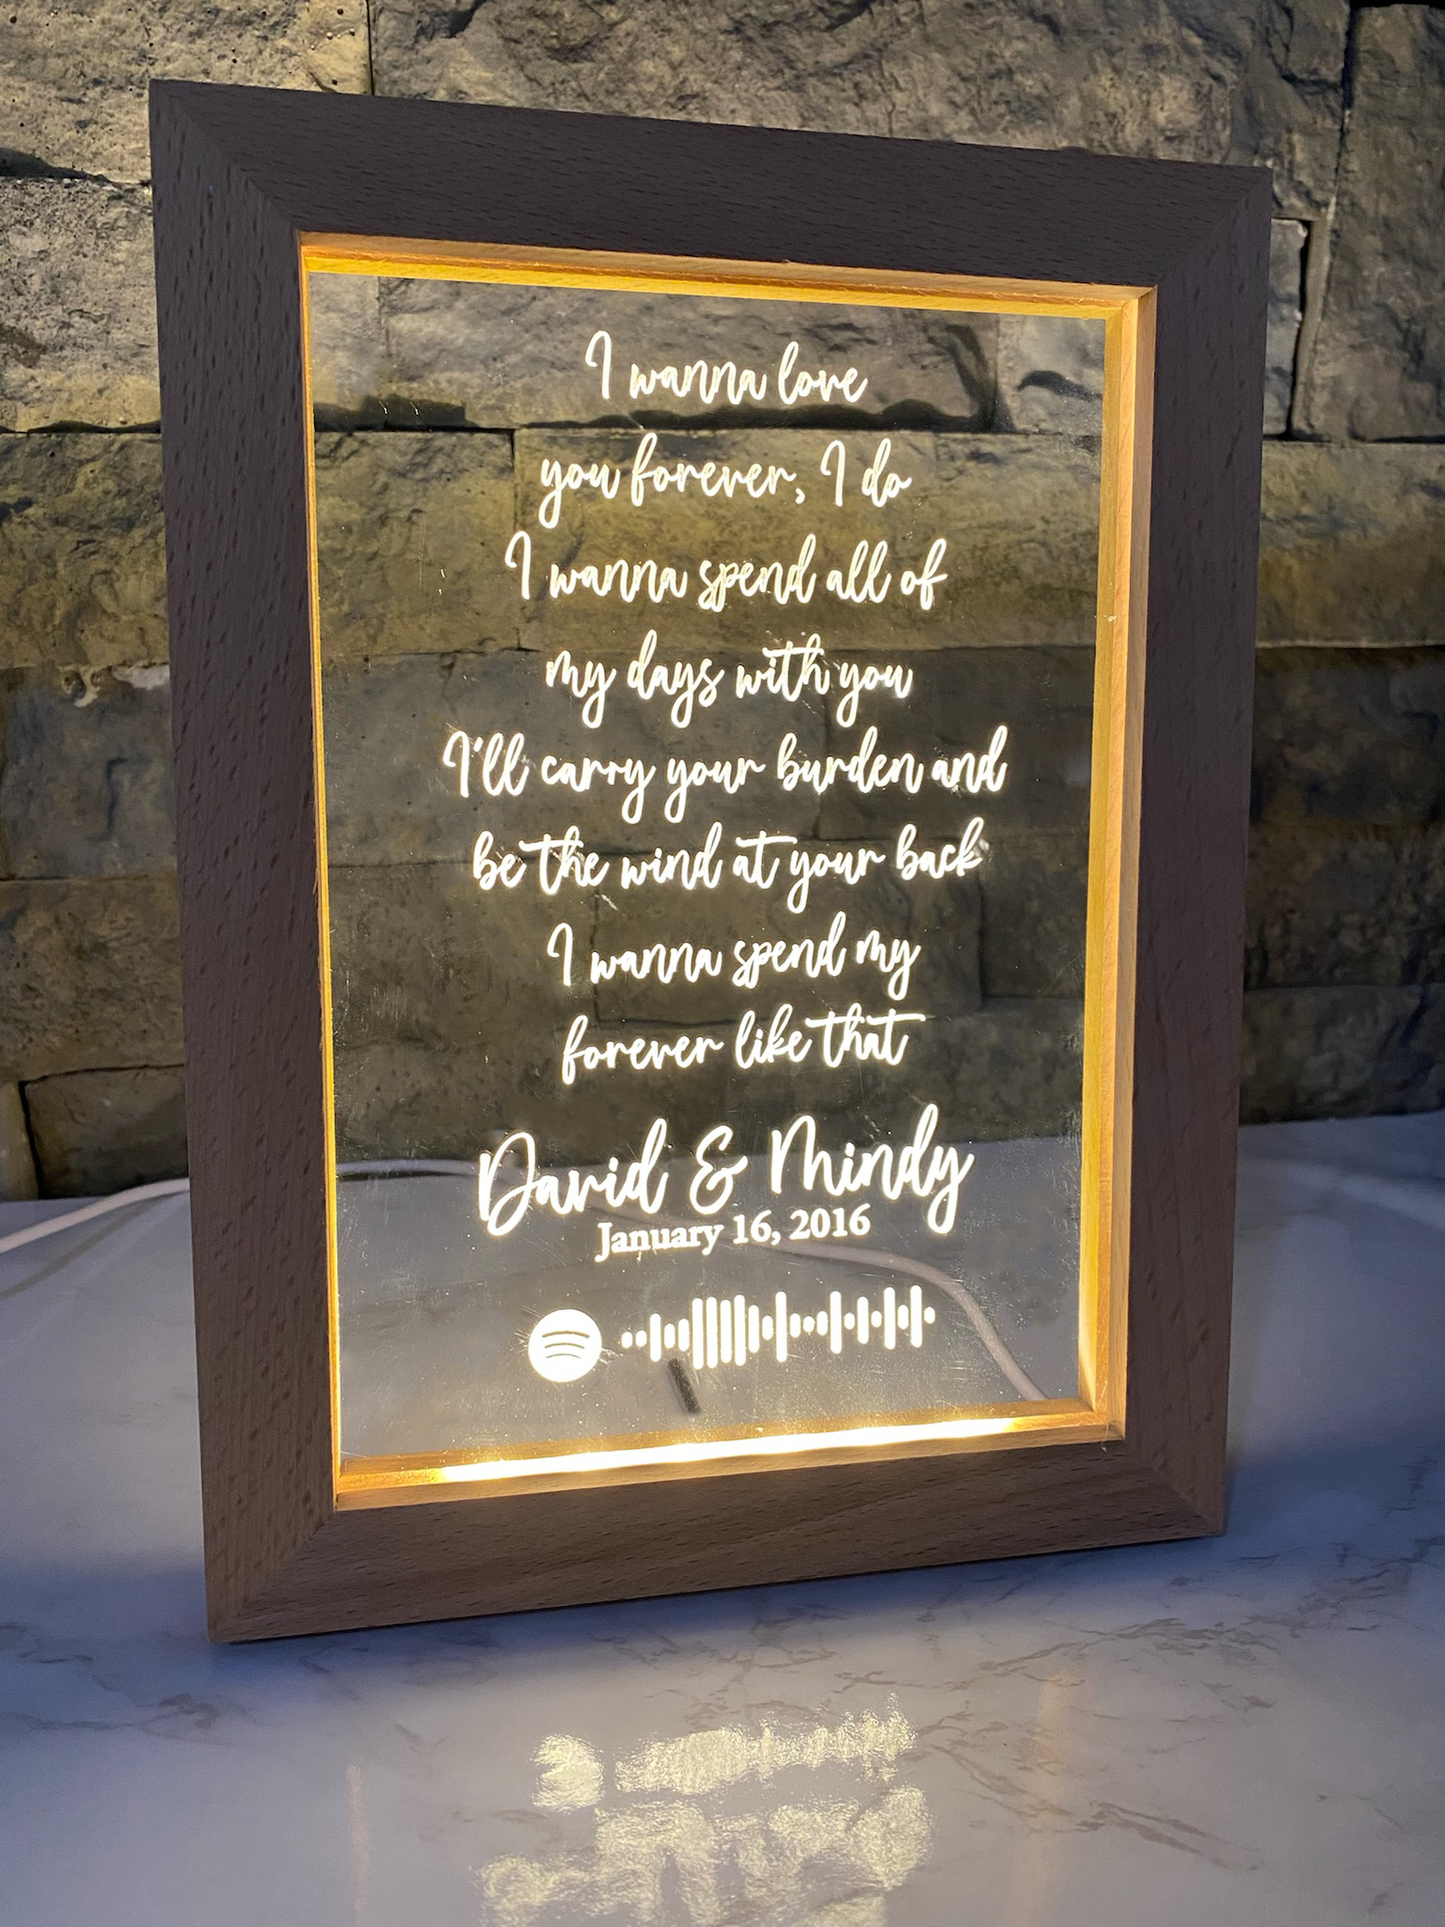 I wanna love
you forever, I do
I wanna spend all of
my days with you
I'll carry your burden and
be the wind at your back
I wanna spend my
forever like that
David & Mindy
January 16, 2016